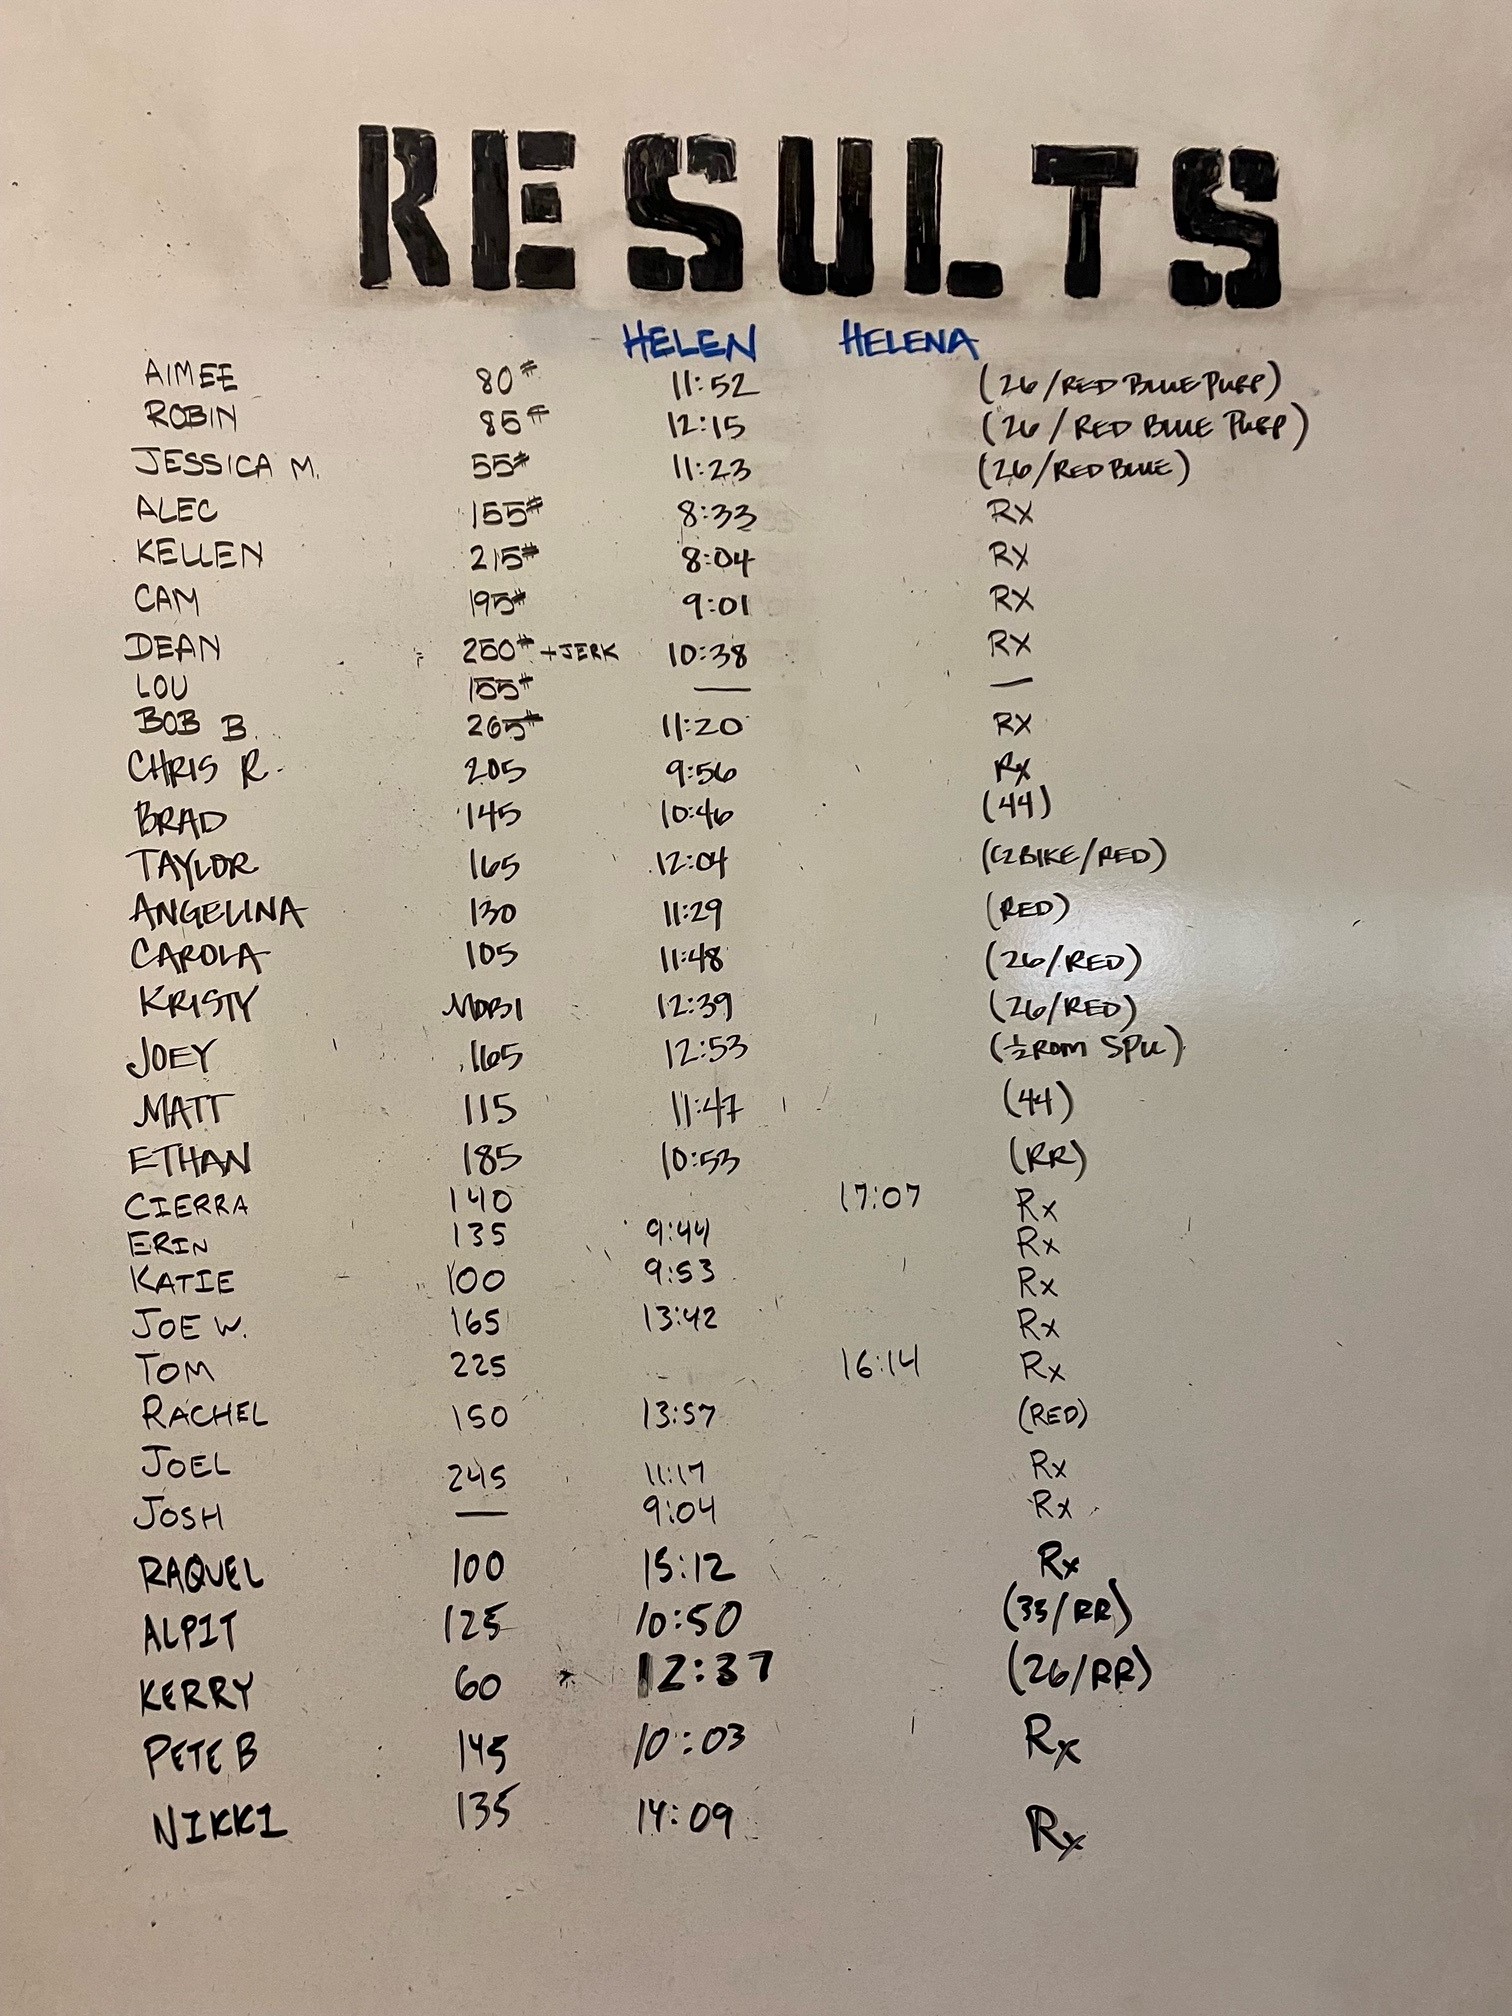 RESULTS
HELEN HELENA
AIMEE 80# 11:52 (26/RED BLUE PURP)
ROBIN 85# 12:15 (26/RED BLUE PURP)
JESSICA M. 55# 11:23 (26/RED BLUE)
ALEC 155# 8:33 Rx
KELLEN 215# 8:04 Rx
CAM 195# 9:01 Rx
DEAN 250# +JERK 10:38 Rx
LOU 155# — —
BOB B. 265# 11:20 Rx
CHRIS R. 205 9:56 Rx
BRAD 145 10:46 (44)
TAYLOR 165 12:04 (C2 BIKE/RED)
ANGELINA 130 11:29 (RED)
CAROLA 105 11:48 (26/RED)
KRISTY MOBI 12:39 (26/RED)
JOEY 165 12:53 (½ ROM SPU)
MATT 115 11:47 (44)
ETHAN 185 10:53 (RR)
CIERRA 140 17:07 Rx
ERIN 135 9:44 Rx
KATIE 100 9:53 Rx
JOE W. 165 13:42 Rx
TOM 225 16:14 Rx
RACHEL 150 13:57 (RED)
JOEL 245 11:17 Rx
JOSH — 9:04 Rx
RAQUEL 100 15:12 Rx
ALPIT 125 10:50 (35/RR)
KERRY 60 12:37 (26/RR)
PETE B 145 10:03 Rx
NIKKI 135 14:09 Rx